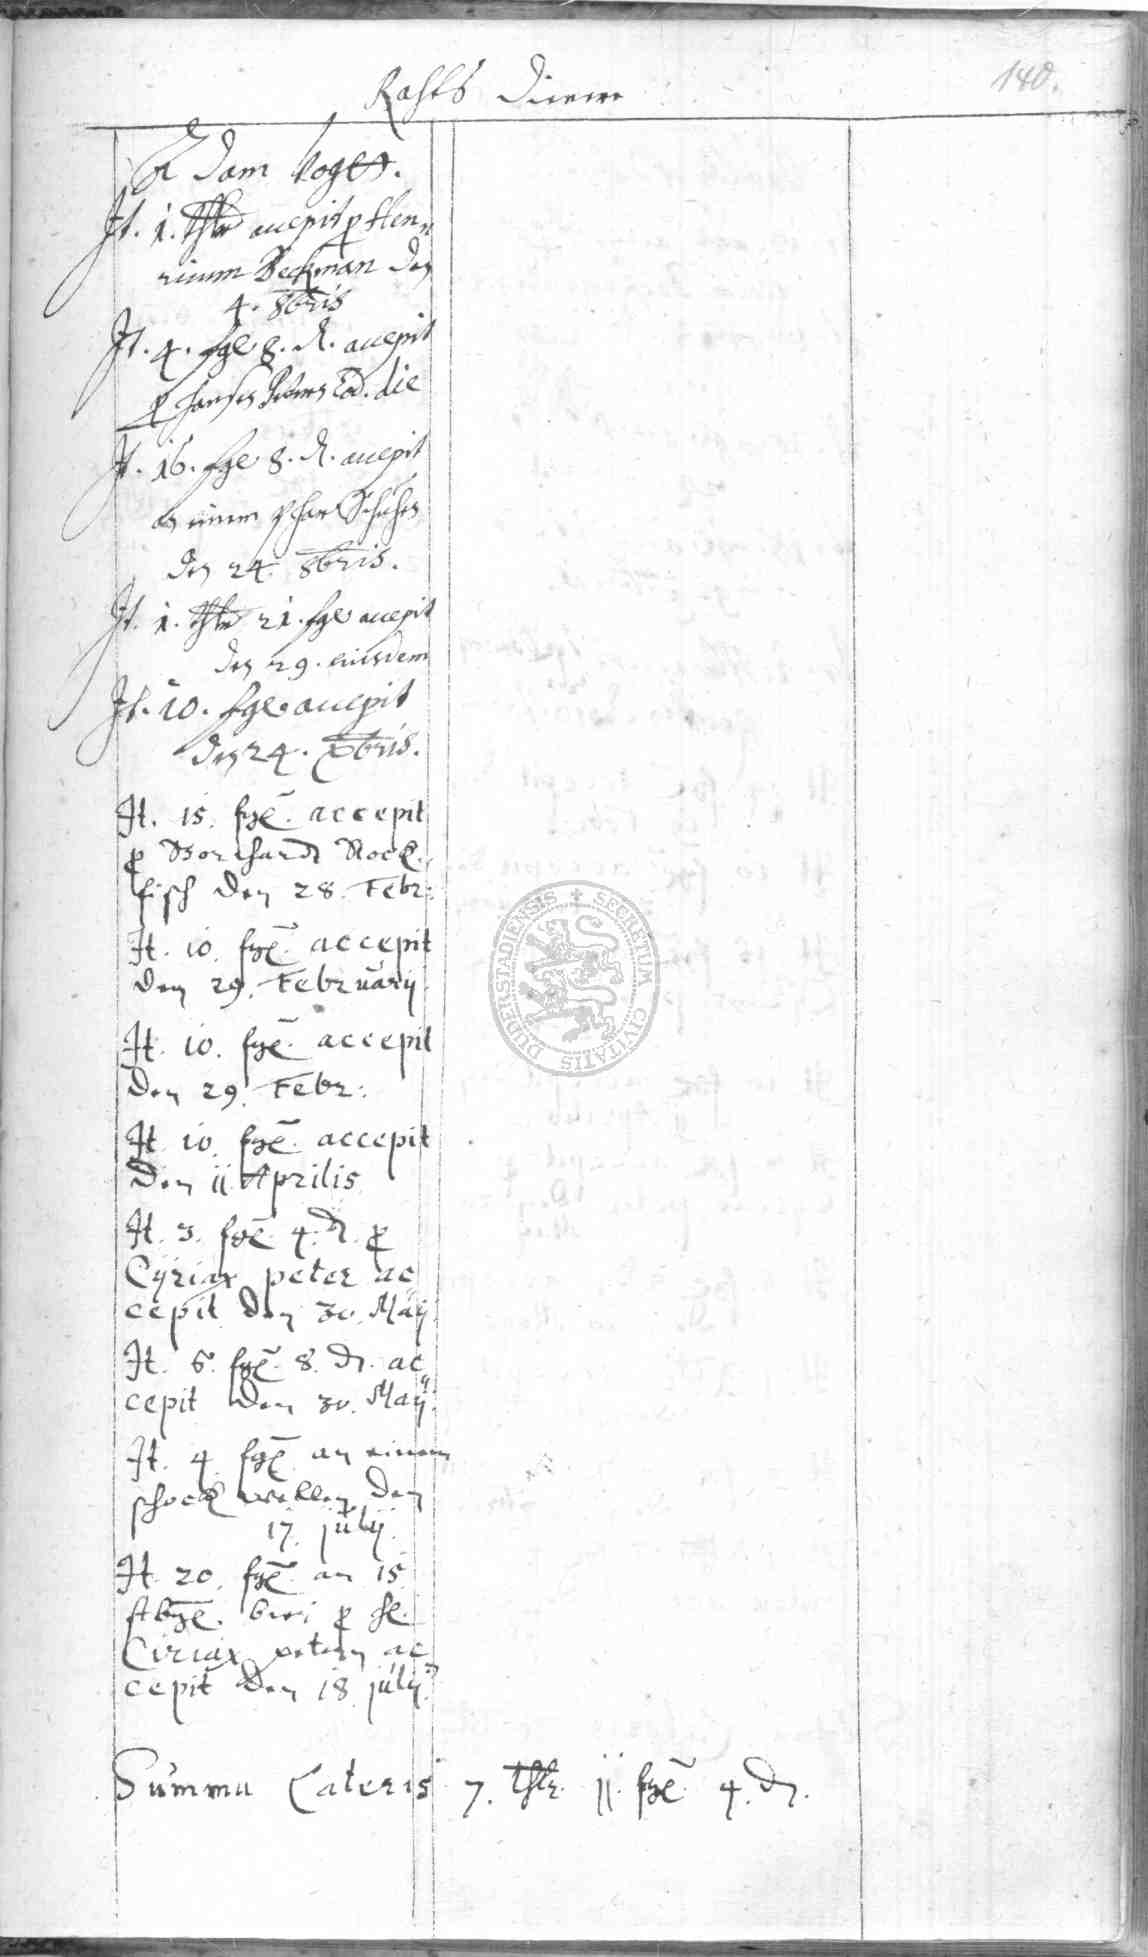 140.
Rahts Diener
Adam Voget.
It. 1. thlr accepit p Hen„
ricum Beckman den
4. 8bris
It. 4. fgl 8. d. accepit
p Hansen Eod. die
It. 16. fgl 8. d. accepit
an einem phar Schuhen
den 24. 8bris.
It. 1. thlr 21. fgl accepit
den 29. eiusdem
It. 10. fgl accepit
den 24. xbris.
It. 15. fgl. accepit
p Borchardt Stock„
fisch den 28. Febr:
It. 10. fgl. accepit
den 29. Februarij
It. 10. fgl. accepit
den 29. Febr:
It. 10. fgl. accepit
den 11 Aprilis
It. 3. fgl. 4. d. p
Cyriax peter ac
cepit den 30. Maij
It. 6. fgl. 8. d. ac
cepit den 30. Maij.
It. 4. fgl. an einem
schock wellen den
17. julij.
It. 20. fgl. an 15
stbgl. bier p H.
Ciriax petern ac
cepit den 18. julij.
Summa Lateris 7. thlr. 11. fgl. 4. d.
SECRETUM CIVITATIS DUDERSTADIENSIS